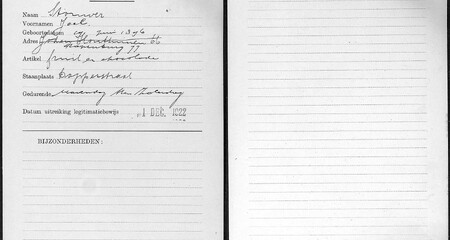 Naam Stouwer
Voornamen Joel
Geboortedatum 19 Juni 1876
Adres Johan 66
77
Artikel fruit en chocolade
Staanplaats
Gedurende maandag t/m Zaterdag
Datum uitreiking legitimatiebewijs 1 DEC. 1922
BIJZONDERHEDEN: